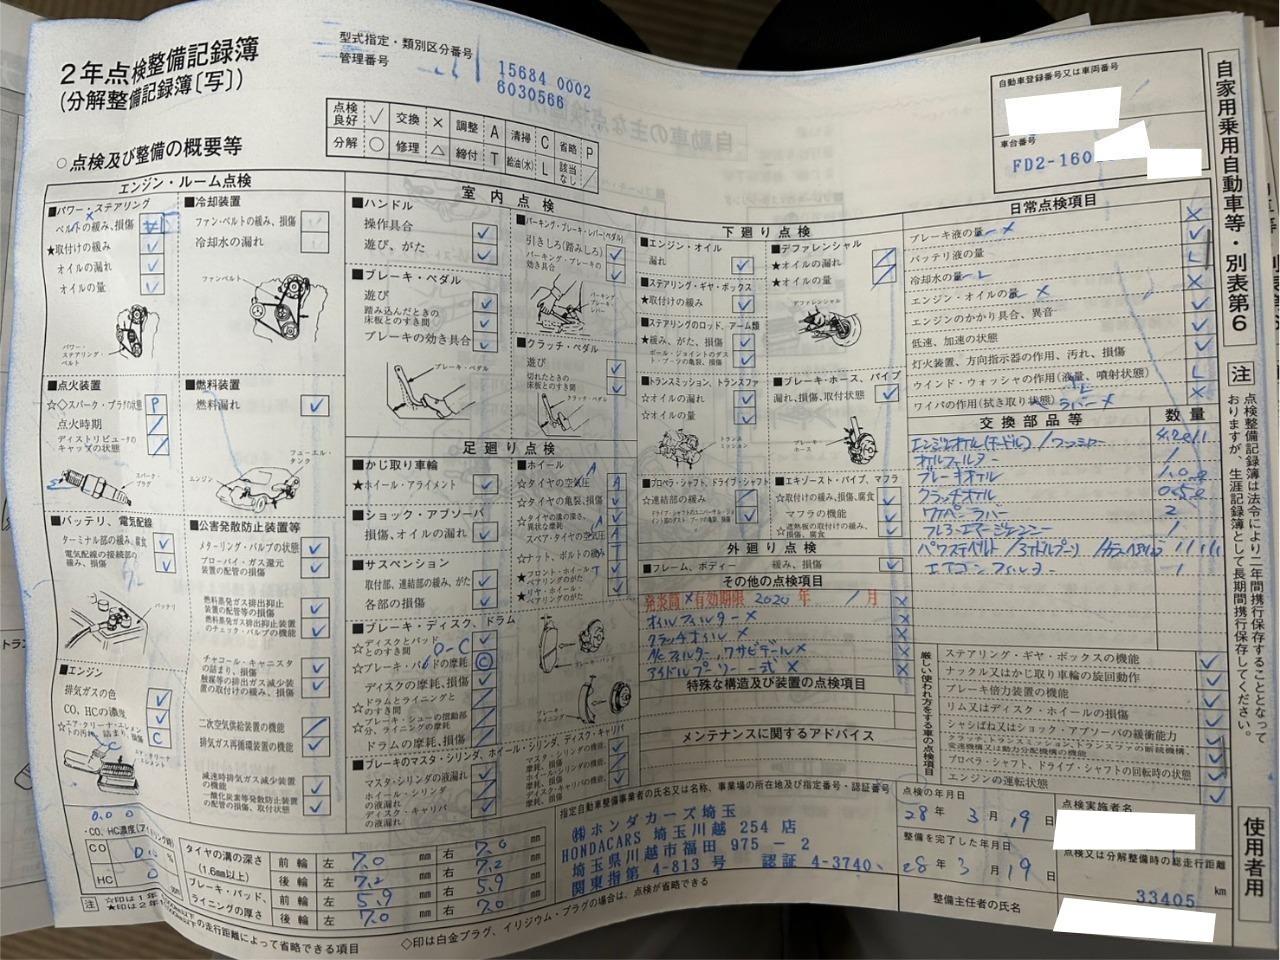 2年点検整備記録簿
(分解整備記録簿〔写〕)
型式指定・類別区分番号
管理番号
15684 0002
6030566
点検良好 ✓ 交換 × 調整 A 清掃 C 省略 P
分解 ○ 修理 △ 締付 T 給油(水) L 該当なし /
自動車登録番号又は車両番号
車台番号
FD2-160
自家用乗用自動車等・別表第6
○点検及び整備の概要等
エンジン・ルーム点検
■パワー・ステアリング
ベルトの緩み、損傷
★取付けの緩み
オイルの漏れ
オイルの量
パワー・ステアリング・ベルト
■冷却装置
ファン・ベルトの緩み、損傷
冷却水の漏れ
ファンベルト
■点火装置
☆◇スパーク・プラグの状態 P
点火時期
ディストリビュータのキャップの状態
スパークプラグ
■燃料装置
燃料漏れ
フューエル・タンク
エンジン
■バッテリ、電気配線
ターミナル部の緩み、腐食
電気配線の接続部の緩み、損傷
バッテリ
■公害発散防止装置等
メターリング・バルブの状態
ブローバイ・ガス還元装置の配管の損傷
燃料蒸発ガス排出抑止装置の配管等の損傷
燃料蒸発ガス排出抑止装置のチェック・バルブの機能
チャコール・キャニスタの詰まり、損傷
触媒等の排出ガス減少装置の取付けの緩み、損傷
二次空気供給装置の機能
排気ガス再循環装置の機能
減速時排気ガス減少装置の機能
一酸化炭素等発散防止装置の配管の損傷、取付状態
■エンジン
排気ガスの色
CO、HCの濃度
☆エア・クリーナ・エレメントの汚れ、詰まり、損傷 C
室内点検
■ハンドル
操作具合
遊び、がた
■ブレーキ・ペダル
遊び
踏み込んだときの床板とのすき間
ブレーキの効き具合
ブレーキ・ペダル
■パーキング・ブレーキ・レバー(ペダル)
引きしろ(踏みしろ)
パーキング・ブレーキの効き具合
パーキング・ブレーキ・レバー
■クラッチ・ペダル
遊び
切れたときの床板とのすき間
クラッチ・ペダル
足廻り点検
■かじ取り車輪
★ホイール・アライメント
■ショック・アブソーバ
損傷、オイルの漏れ
■サスペンション
取付部、連結部の緩み、がた
各部の損傷
■ブレーキ・ディスク、ドラム
☆ディスクとパッドとのすき間
☆ブレーキ・パッドの摩耗
ディスクの摩耗、損傷
☆ドラムとライニングとのすき間
☆ブレーキ・シューの摺動部分、ライニングの摩耗
ドラムの摩耗、損傷
■ブレーキのマスタ・シリンダ、ホイール・シリンダ、ディスク・キャリパ
マスタ・シリンダの液漏れ
ホイール・シリンダの液漏れ
ディスク・キャリパの液漏れ
マスタ・シリンダの機能、摩耗、損傷
ホイール・シリンダの機能、摩耗、損傷
ディスク・キャリパの機能、摩耗、損傷
■ホイール
☆タイヤの空気圧 A
☆タイヤの亀裂、損傷
☆タイヤの溝の深さ、異状な摩耗
スペア・タイヤの空気圧 A
☆ナット、ボルトの緩み T
★フロント・ホイール・ベアリングのがた
★リヤ・ホイール・ベアリングのがた
ブレーキ・パッド
ブレーキ・ライニング
下廻り点検
■エンジン・オイル
漏れ
■ステアリング・ギヤ・ボックス
★取付けの緩み
■ステアリングのロッド、アーム類
★緩み、がた、損傷
ボール・ジョイントのダスト・ブーツの亀裂、損傷
■トランスミッション、トランスファ
☆オイルの漏れ
☆オイルの量
トランスミッション
■プロペラ・シャフト、ドライブ・シャフト
☆連結部の緩み
ドライブ・シャフトのユニバーサル・ジョイント部のダスト・ブーツの亀裂、損傷
■デファレンシャル
★オイルの漏れ
★オイルの量
デファレンシャル
■ブレーキ・ホース、パイプ
漏れ、損傷、取付状態
ブレーキ・ホース
■エキゾースト・パイプ、マフラ
☆取付けの緩み、損傷、腐食
マフラの機能
☆遮熱板の取付けの緩み、損傷、腐食
外廻り点検
■フレーム、ボディー 緩み、損傷
その他の点検項目
発炎筒 × 有効期限 2020 年 1 月 ×
オイルフィルター ×
クラッチオイル ×
特殊な構造及び装置の点検項目
メンテナンスに関するアドバイス
日常点検項目
ブレーキ液の量 ×
バッテリ液の量
冷却水の量 L
エンジン・オイルの量 ×
エンジンのかかり具合、異音
低速、加速の状態
灯火装置、方向指示器の作用、汚れ、損傷
ウインド・ウォッシャの作用(液量、噴射状態) L
ワイパの作用(拭き取り状態) ラバー ×
交換部品等 数量
オイルフィルター 1
ブレーキオイル 1.0
クラッチオイル 0.5
ワイパーラバー 2
エアコンフィルター 1
厳しい使われ方をする車の点検項目
ステアリング・ギヤ・ボックスの機能
ナックル又はかじ取り車輪の旋回動作
ブレーキ倍力装置の機能
リム又はディスク・ホイールの損傷
シャシばね又はショック・アブソーバの緩衝能力
クラッチ、トランスミッション、トランスファの断続機構、変速機構又は動力分配機構の機能
プロペラ・シャフト、ドライブ・シャフトの回転時の状態
エンジンの運転状態
注 点検整備記録簿は法令により二年間携行保存することとなっておりますが、生涯記録簿として長期間携行保存してください。
使用者用
・CO、HC濃度(アイドリング時)
CO 0.0 %
HC 0
タイヤの溝の深さ (1.6mm以上)
前輪 左 7.0 mm 右 7.0 mm
後輪 左 7.2 mm 右 7.2 mm
ブレーキ・パッド、ライニングの厚さ
前輪 左 5.9 mm 右 5.9 mm
後輪 左 7.0 mm 右 7.0 mm
指定自動車整備事業者の氏名又は名称、事業場の所在地及び指定番号・認証番号
㈱ホンダカーズ埼玉
HONDACARS 埼玉川越 254 店
埼玉県川越市福田 975 - 2
関東指第 4-813 号 認証 4-3740、
点検の年月日
28 年 3 月 19 日
整備を完了した年月日
28 年 3 月 19 日
整備主任者の氏名
点検実施者名
点検又は分解整備時の総走行距離
33405 km
の走行距離によって省略できる項目
◇印は白金プラグ、イリジウム・プラグの場合は、点検が省略できる